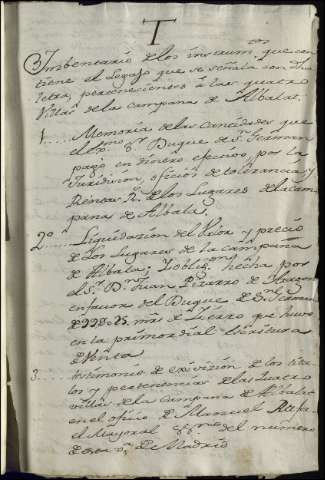 T
Imbentario de los instrum.tos que con
tiene el Legajo que se señala con dha
letra, pertenecientes à las quatro
Villas de la campana de Albalat.
1.... Memoria de las Cantidades que
el Ex.mo S.r Duque de S.n German
pagó en dinero efectivo, por la
Jurisdicion, oficios de tolerancia y
Rentas R.s de los Lugares de la Cam
pana de Albala.
2.o.. Liquidacion del Valor y precio
de los Lugares de la Campana
de Albala; y oblig.on hecha por
el S.r D.n Juan Pizarro de Aragon
en favor del Duque de S.n German
de mrs de el exceso que huvo
en la primordial escritura
de Venta
3.... testimonio de exivision de los titu
los y pertenencias de las quatro
villas de la Campana de Albalat
en el oficio de Manuel
el Mayoral ess.no del numero
de esta v.a de Madrid